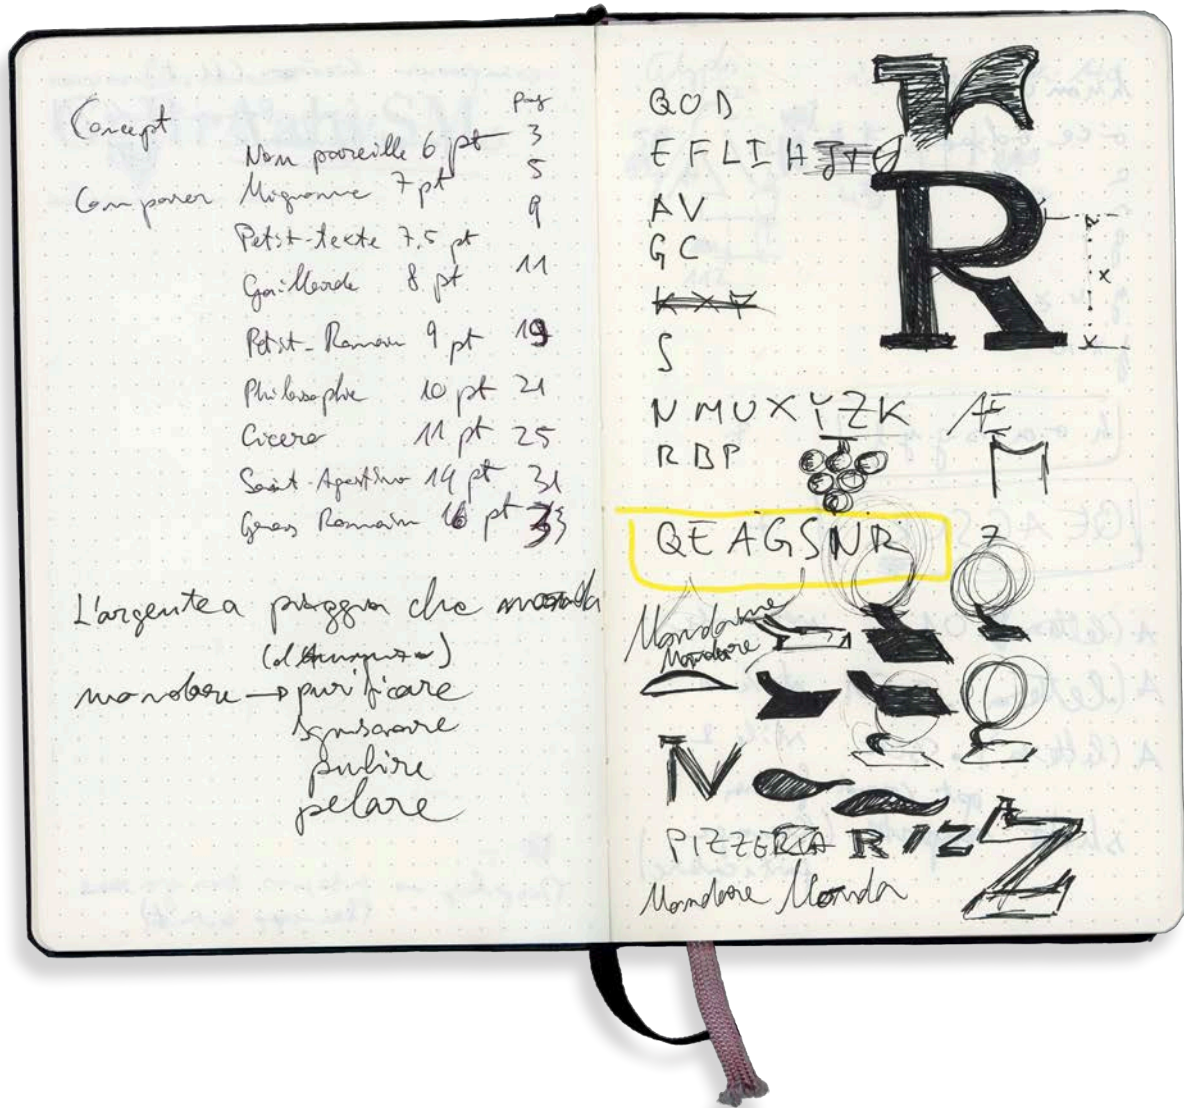 Concept
pag
Non pareille 6 pt 3
Comparer Mignonne 7 pt 5
Petit-texte 7,5 pt 9
Gaillarde 8 pt 11
Petit-Romain 9 pt 19
Philosophie 10 pt 21
Cicero 11 pt 25
Saint-Agostino 14 pt 31
Gros Romain 16 pt 33
L'argentea pioggia che monda
mondare → purificare
pulire
pelare
r
Q O D
E F L I H J T
R
A V
G C
x
K X Y
S
N M U X Y Z K Æ
R B P
M
Q E A G S N R
z
Mondare
Mondare
N
PIZZERIA R I Z Z
Mondare Monda